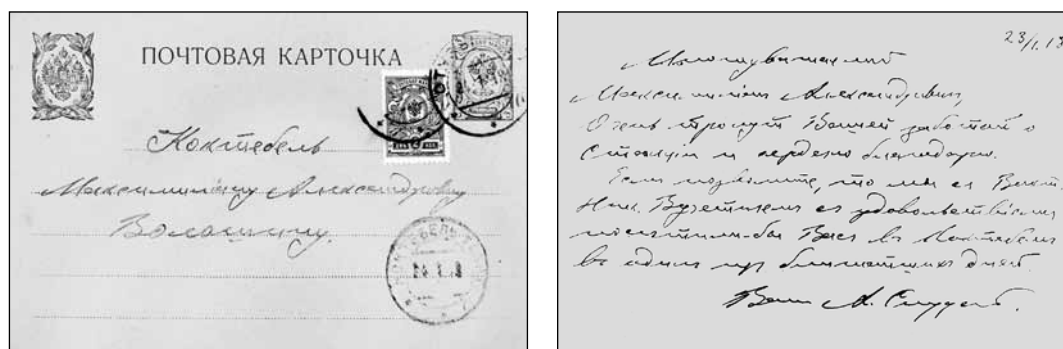 ПОЧТОВАЯ КАРТОЧКА
Коктебель
Максимилiану Александровичу
Волошину.
23/1.18
Многоуважаемый
Максимилiан Александрович,
Очень тронут Вашей заботой о
Станцiи и сердечно благодарю.
Если позволите, то мы съ Викт.
Ник. съ удовольствiем
посетили-бы Вас въ Коктебель
въ один из ближайших дней.
Ваш А.